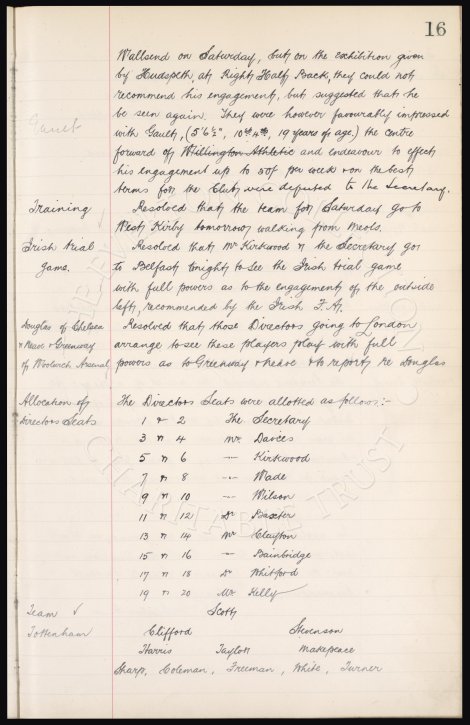 16
Wallsend on Saturday, but on the exhibition given
by Hudspeth, at Right Half Back, they could not
recommend his engagement, but suggested that he
be seen again. They were however favourably impressed
Gault
with Gault, (5'6½", 10st 4lb, 19 years of age.) the centre
forward of Willington Athletic and endeavour to effect
his engagement up to 50/- per week & on the best
terms for the Club, were deputed to the Secretary.
Training
Resolved that the team for Saturday go to
West Kirby tomorrow, walking from Meols.
Irish trial
Resolved that Mr Kirkwood & the Secretary go
game.
to Belfast tonight to see the Irish trial game
with full powers as to the engagement of the outside
left, recommended by the Irish F.A.
Douglas of Chelsea
Resolved that those Directors going to London
& Neave & Greenway
arrange to see these players play with full
of Woolwich Arsenal
powers as to Greenway & Neave & to report re Douglas
Allocation of
The Directors Seats were allotted as follows:-
Directors Seats
1 & 2 The Secretary
3 " 4 Mr Davies
5 " 6 — Kirkwood
7 " 8 — Wade
9 " 10 — Wilson
11 " 12 Dr Baxter
13 " 14 Mr Clayton
15 " 16 — Bainbridge
17 " 18 Dr Whitford
19 " 20 Mr Kelly
Team v
Scott
Tottenham
Clifford Stevenson
Harris Taylor Makepeace
Sharp, Coleman, Freeman, White, Turner
CHARITABLE TRUST